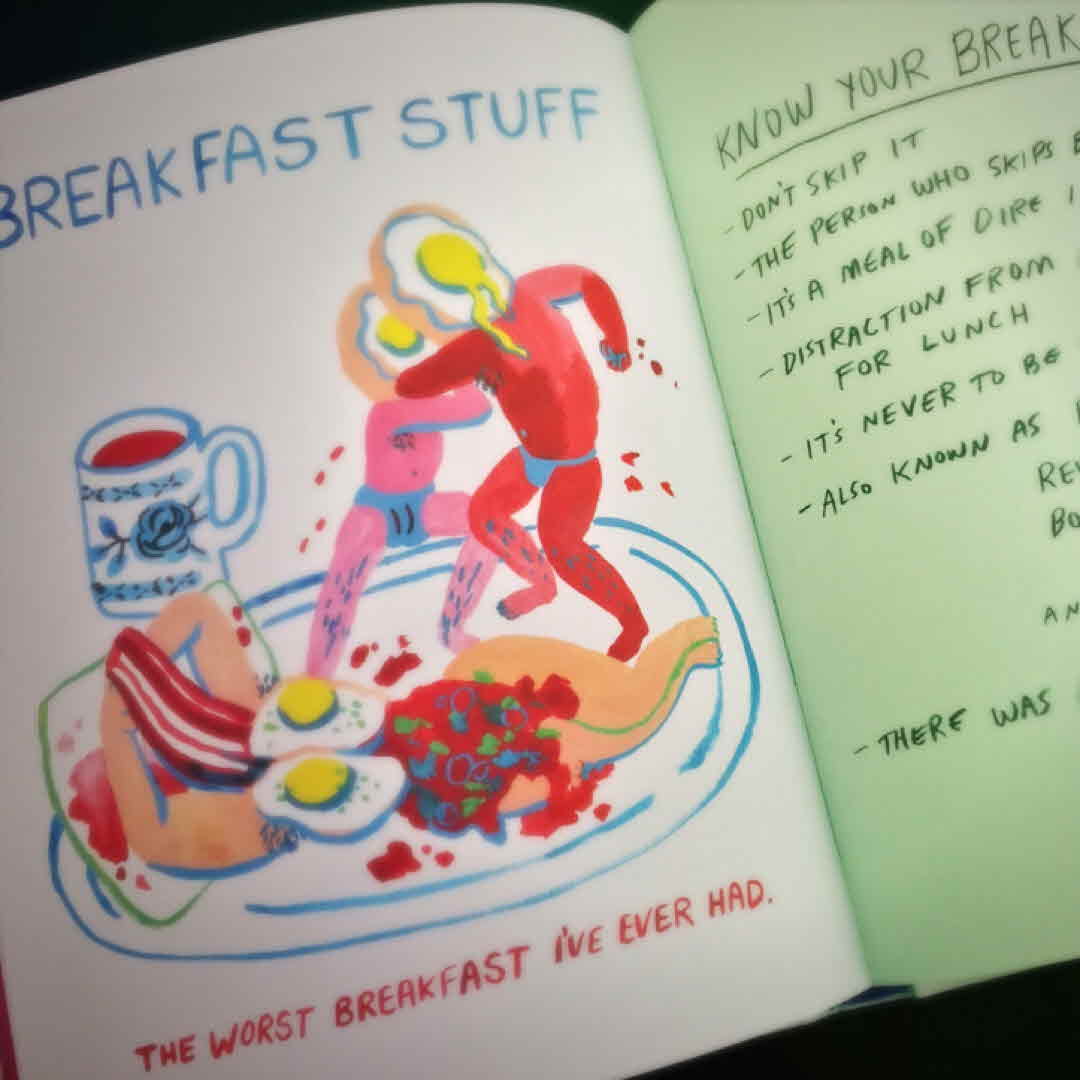 BREAKFAST STUFF
THE WORST BREAKFAST I'VE EVER HAD.
KNOW YOUR
- DON'T SKIP IT
- THE PERSON WHO SKIPS
- IT'S A MEAL OF DIRE
- DISTRACTION FROM
FOR LUNCH
- IT'S NEVER TO BE
- ALSO KNOWN AS
- THERE WAS